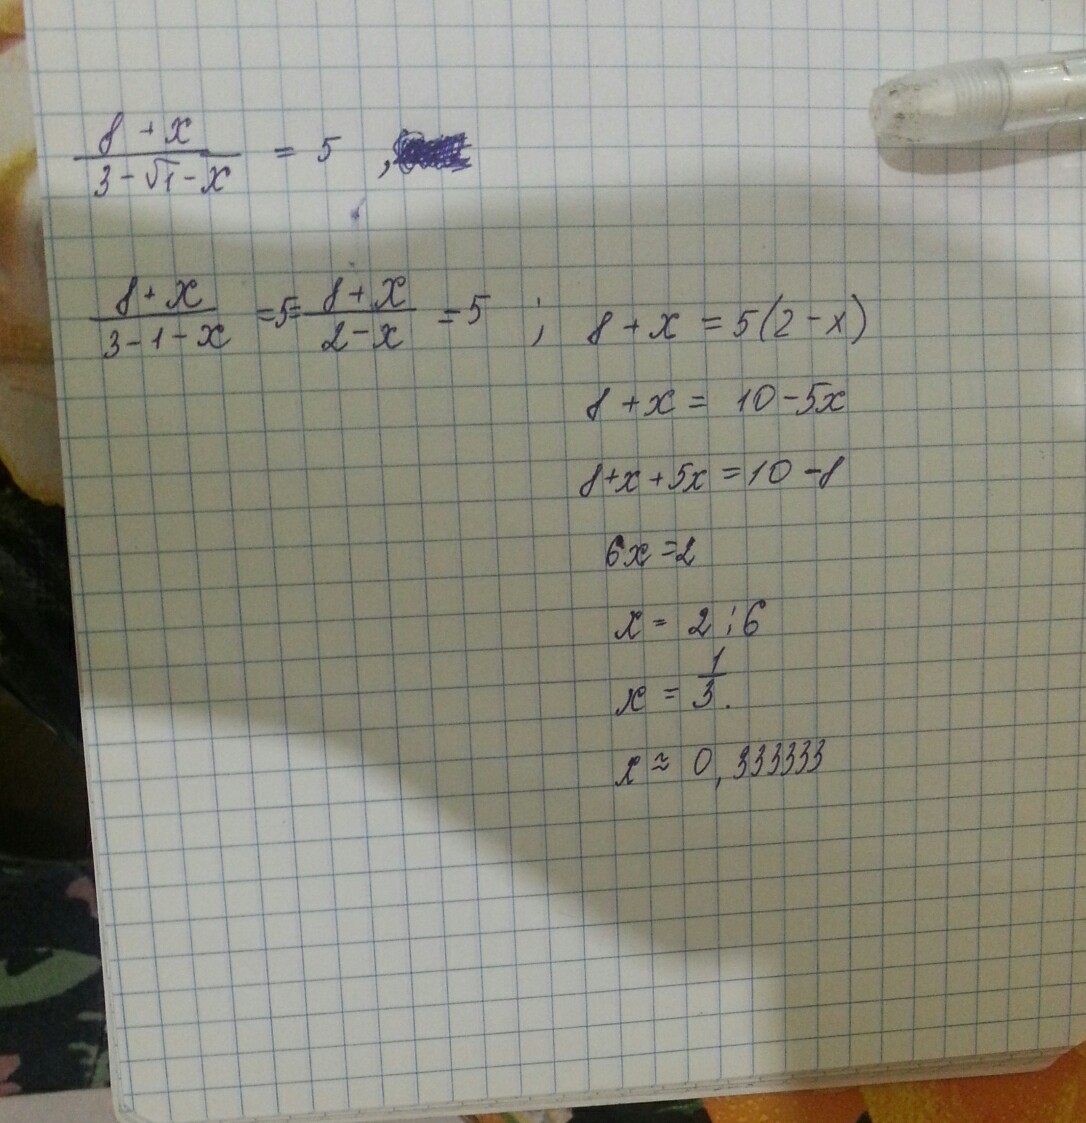 8 + x / 3 - √1 - x = 5 ,
8 + x / 3 - 1 - x = 5 = 8 + x / 2 - x = 5 ; 8 + x = 5(2 - x)
8 + x = 10 - 5x
8 + x + 5x = 10 - 8
6x = 2
x = 2 : 6
x = 1/3 .
x ≈ 0,333333